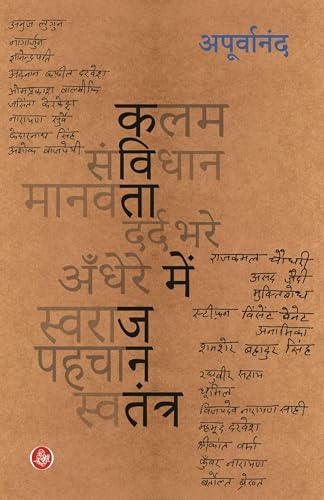 अपूर्वानंद
अनुज लुगुन
नागार्जुन
ज्ञानेन्द्रपति
अदनान कफ़ील दरवेश
ओमप्रकाश वाल्मीकि
जसिंता केरकेट्टा
नारायण सुर्वे
केदारनाथ सिंह
अशोक वाजपेयी
कलम
संविधान
मानवता
दर्द भरे
अँधेरे में
स्वराज
पहचान
स्वतंत्र
राजकमल चौधरी
असद ज़ैदी
मुक्तिबोध
स्टीफ़न विंसेंट बेनेट
अनामिका
शमशेर बहादुर सिंह
रघुवीर सहाय
धूमिल
विजयदेव नारायण साही
महमूद दरवेश
श्रीकांत वर्मा
कुँवर नारायण
बर्तोल्त ब्रेख़्त